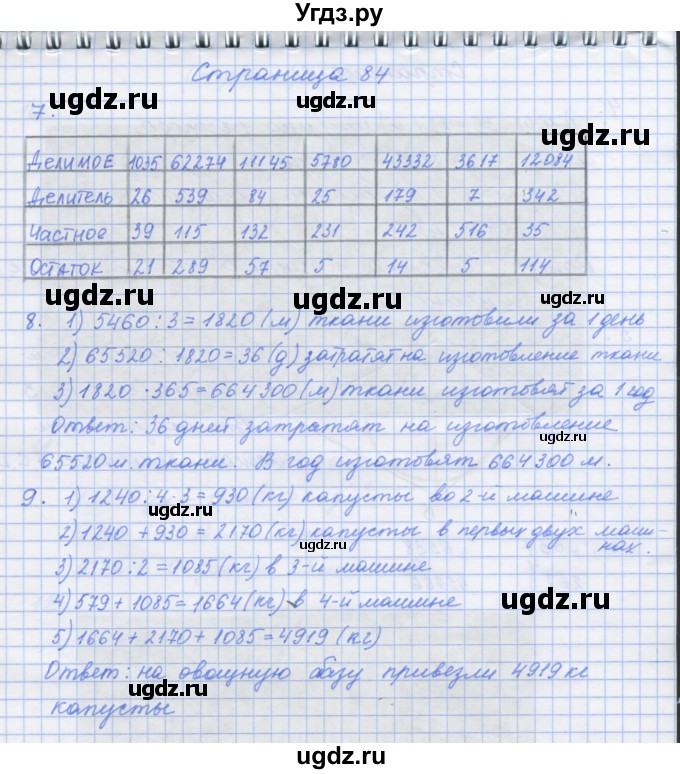 Угдз.ру
Страница 84
ugdz.ru ugdz.ru
7.
ugdz.ru
Делимое 1035 62274 11145 5780 43332 3617 12084
Делитель 26 539 84 25 179 7 342
Частное 39 115 132 231 242 516 35
Остаток 21 289 57 5 14 5 114
ugdz.ru ugdz.ru
8. 1) 5460 : 3 = 1820 (м) ткани изготовили за 1 день
2) 65520 : 1820 = 36 (д) затратят на изготовление ткани
3) 1820 · 365 = 664300 (м) ткани изготовят за 1 год
Ответ: 36 дней затратят на изготовление
ugdz.ru
65520 м. ткани. В год изготовят 664300 м.
ugdz.ru
9. 1) 1240 : 4 · 3 = 930 (кг) капусты во 2-й машине
2) 1240 + 930 = 2170 (кг) капусты в первых двух маши-
нах.
ugdz.ru
3) 2170 : 2 = 1085 (кг) в 3-й машине
4) 579 + 1085 = 1664 (кг) в 4-й машине
ugdz.ru
5) 1664 + 2170 + 1085 = 4919 (кг)
Ответ: на овощную базу привезли 4919 кг
ugdz.ru ugdz.ru
капусты
ugdz.ru